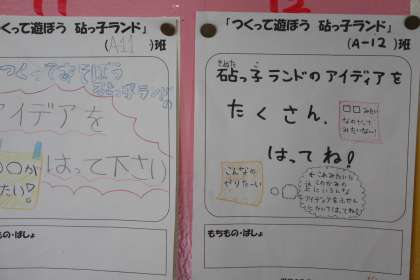 11
つくって遊ぼう 砧っ子ランド」
(A-11)班
つくってあそぼう
砧っ子ランドの
アイデアを
はって下さい
○○が
たい!
もちもの・ばしょ
12
「つくって遊ぼう 砧っ子ランド」
(A-12)班
きぬた
砧っ子ランドのアイディアを
たくさん、
□□みたい
なのやって
みたいなー!
はってね!
こんなの
やりたーい
もちもの・ばしょ